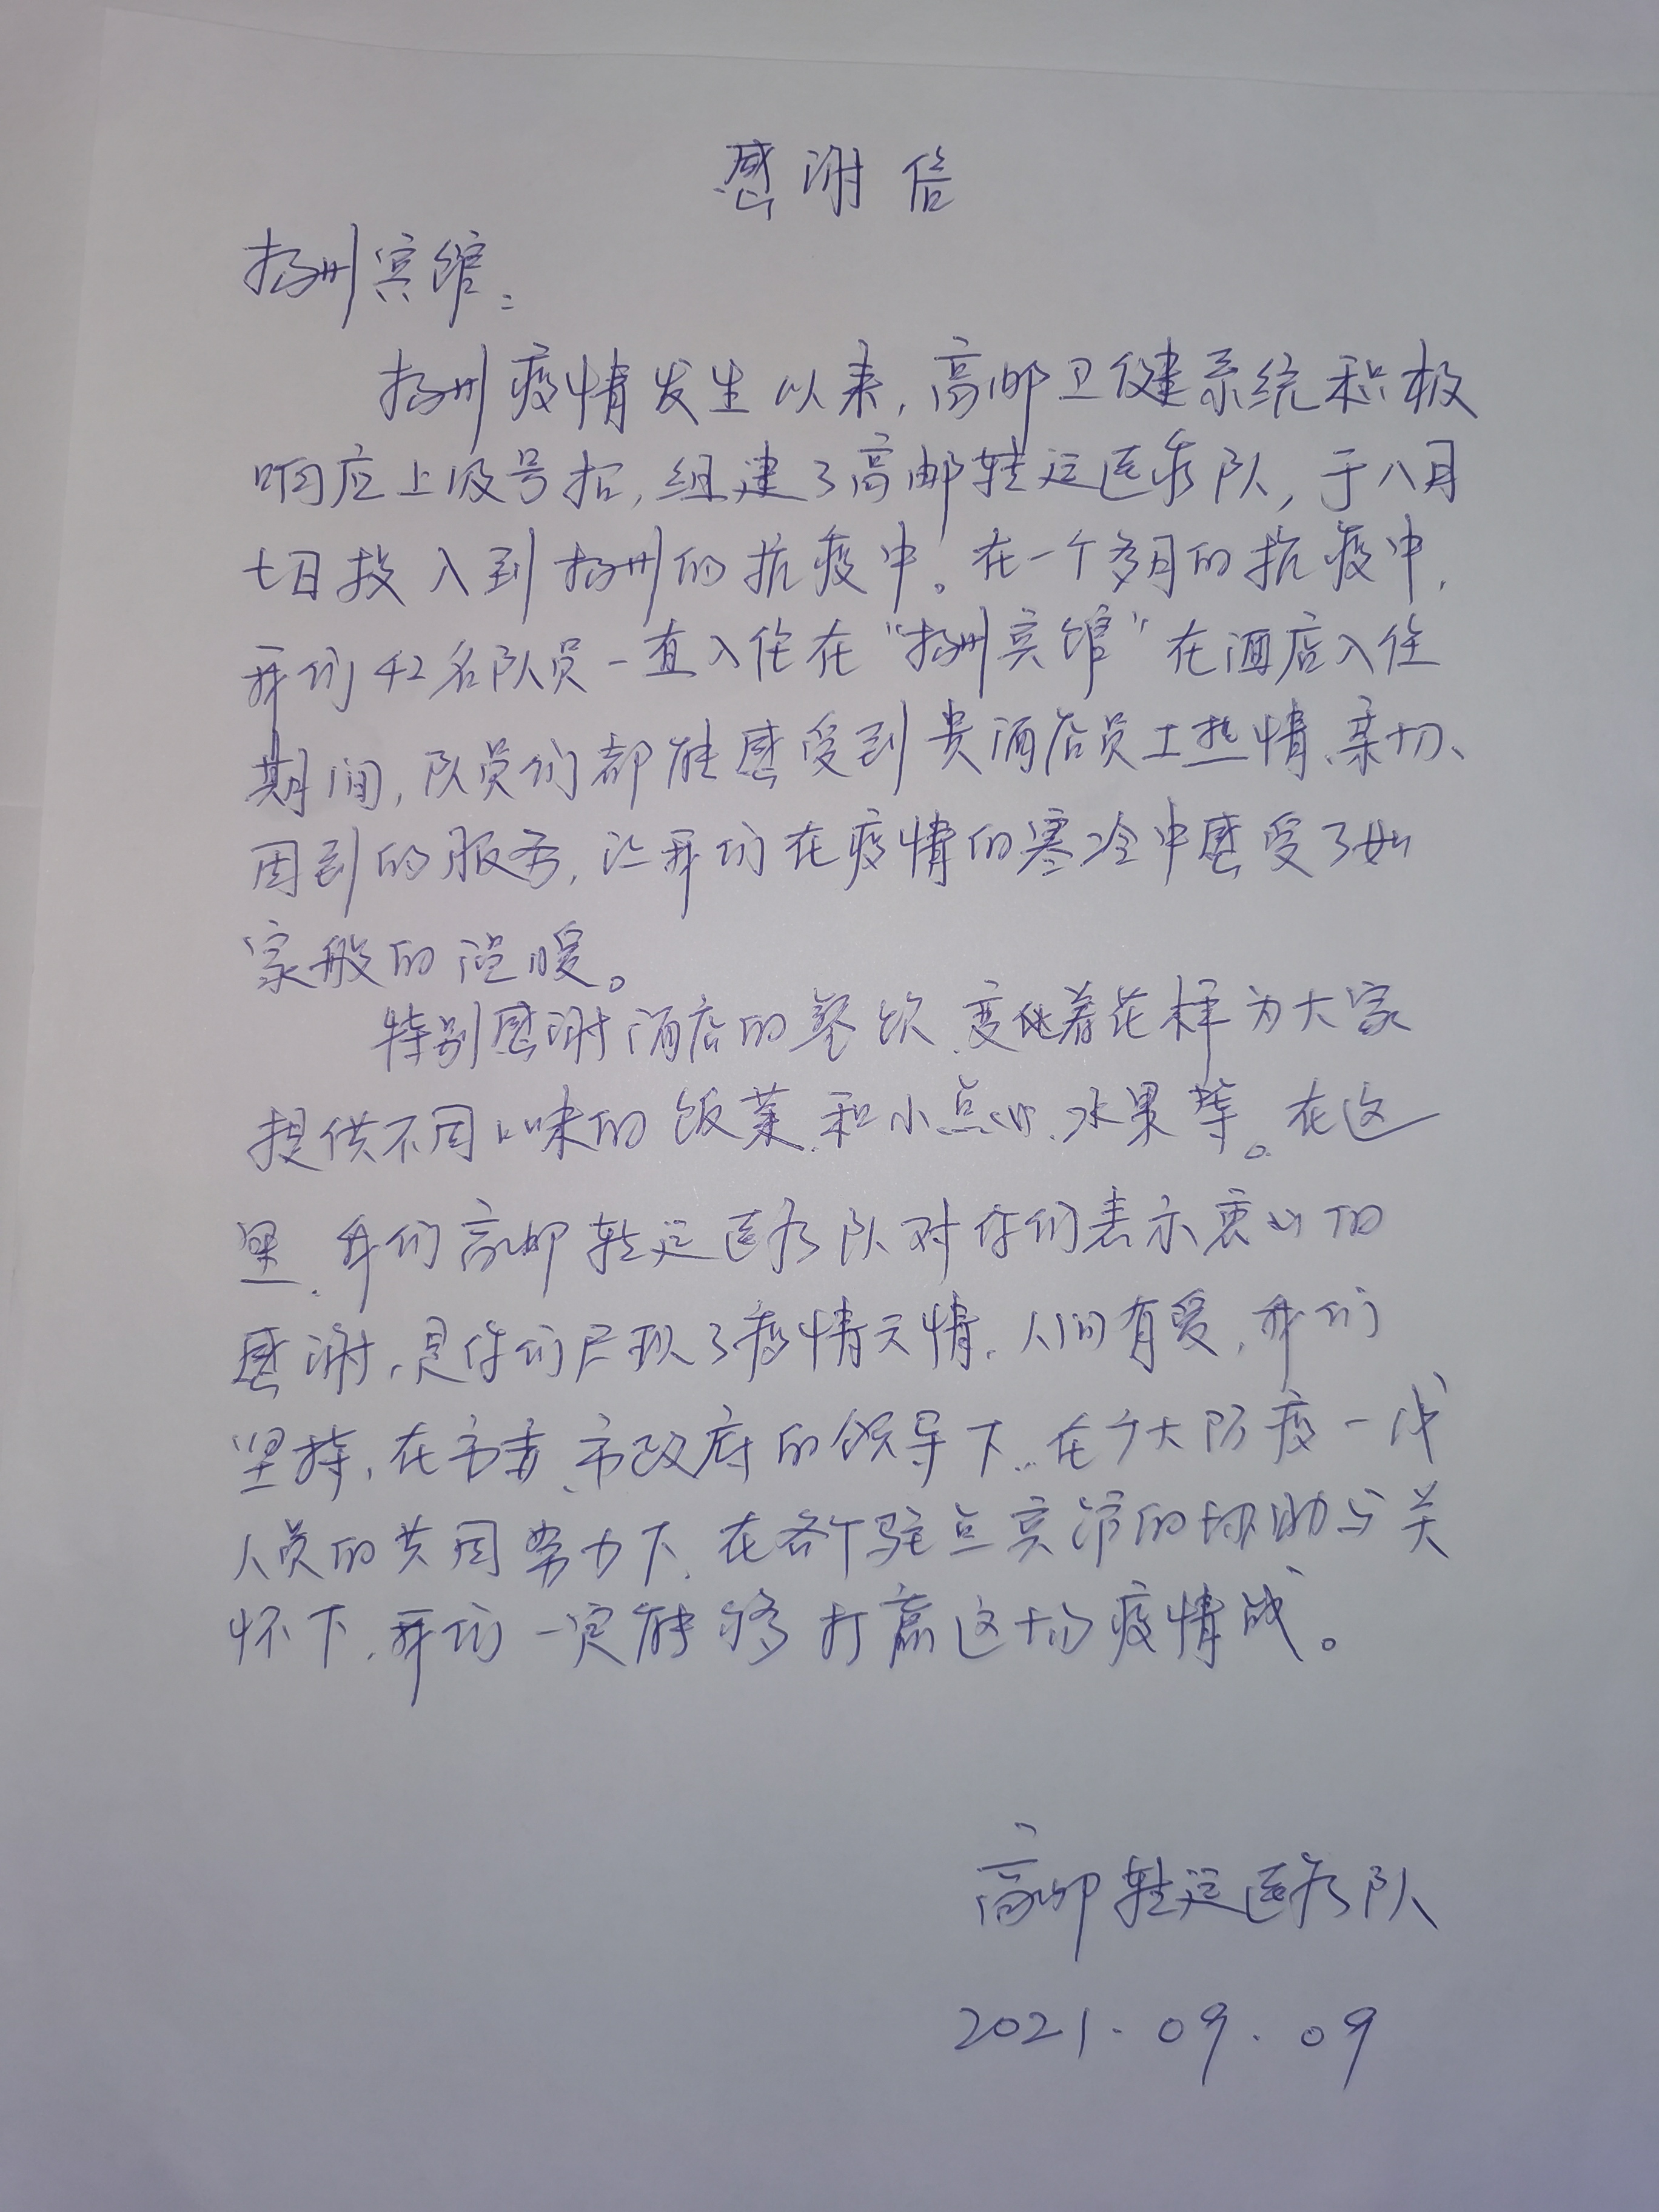 感谢信
扬州宾馆:
扬州疫情发生以来,高邮卫健系统积极
响应上级号招,组建了高邮转运医疗队,于八月
七日投入到扬州的抗疫中。在一个多月的抗疫中,
我们42名队员一直入住在“扬州宾馆”在酒店入住
期间,队员们都能感受到贵酒店员工热情、亲切、
周到的服务,让我们在疫情的寒冷中感受了如
家般的温暖。
特别感谢酒店的餐饮、变化着花样为大家
提供不同口味的饭菜、和小点心、水果等。在这
里、我们高邮转运医疗队对你们表示衷心的
感谢,是你们尽现了疫情无情、人间有爱,我们
坚持,在市委、市政府的领导下、在广大防疫一线
人员的共同努力下、在各个驻点宾馆的协助与关
怀下,我们一定能够打赢这场疫情战。
高邮转运医疗队
2021.09.09